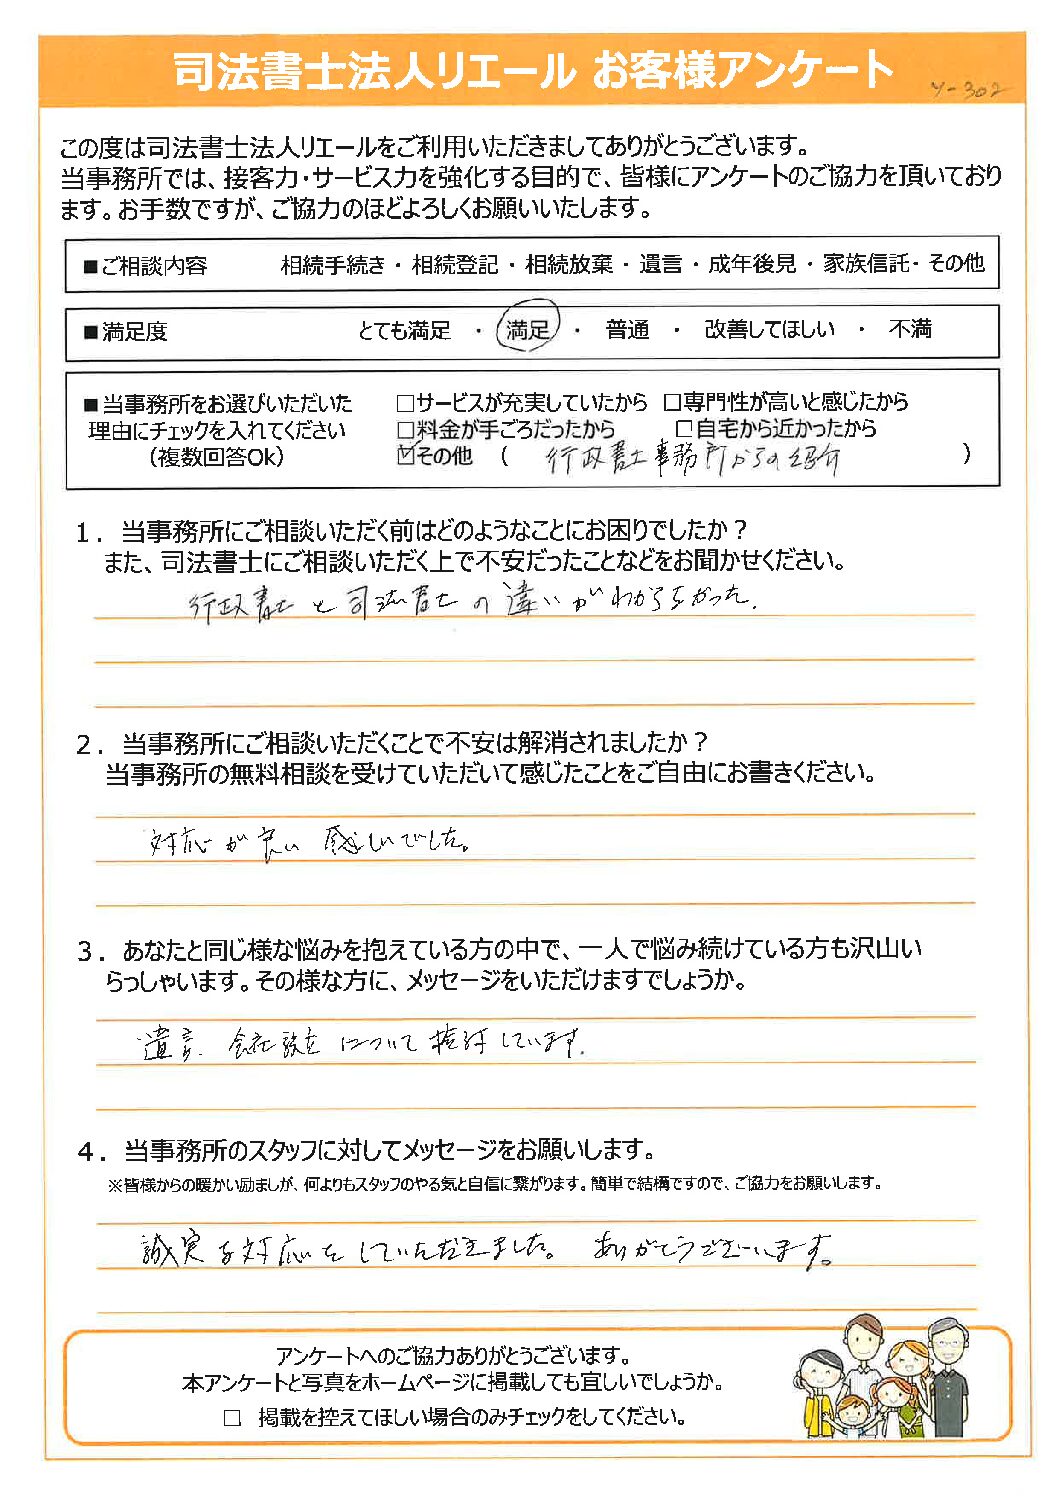 司法書士法人リエール お客様アンケート
Y-302
この度は司法書士法人リエールをご利用いただきましてありがとうございます。
当事務所では、接客力・サービス力を強化する目的で、皆様にアンケートのご協力を頂いており
ます。お手数ですが、ご協力のほどよろしくお願いいたします。
■ご相談内容 相続手続き・相続登記・相続放棄・遺言・成年後見・家族信託・その他
■満足度 とても満足 ・ 満足 ・ 普通 ・ 改善してほしい ・ 不満
■当事務所をお選びいただいた □サービスが充実していたから □専門性が高いと感じたから
理由にチェックを入れてください □料金が手ごろだったから □自宅から近かったから
(複数回答Ok) ☑その他 ( 行政書士事務所からの紹介 )
1．当事務所にご相談いただく前はどのようなことにお困りでしたか？
また、司法書士にご相談いただく上で不安だったことなどをお聞かせください。
行政書士と司法書士の違いがわからなかった.
2．当事務所にご相談いただくことで不安は解消されましたか？
当事務所の無料相談を受けていただいて感じたことをご自由にお書きください。
対応が良い感じでした。
3．あなたと同じ様な悩みを抱えている方の中で、一人で悩み続けている方も沢山い
らっしゃいます。その様な方に、メッセージをいただけますでしょうか。
遺言. 会社設立について検討しています.
4．当事務所のスタッフに対してメッセージをお願いします。
※皆様からの暖かい励ましが、何よりもスタッフのやる気と自信に繋がります。簡単で結構ですので、ご協力をお願いします。
誠実な対応をしていただきました。ありがとうございます。
アンケートへのご協力ありがとうございます。
本アンケートと写真をホームページに掲載しても宜しいでしょうか。
□ 掲載を控えてほしい場合のみチェックをしてください。